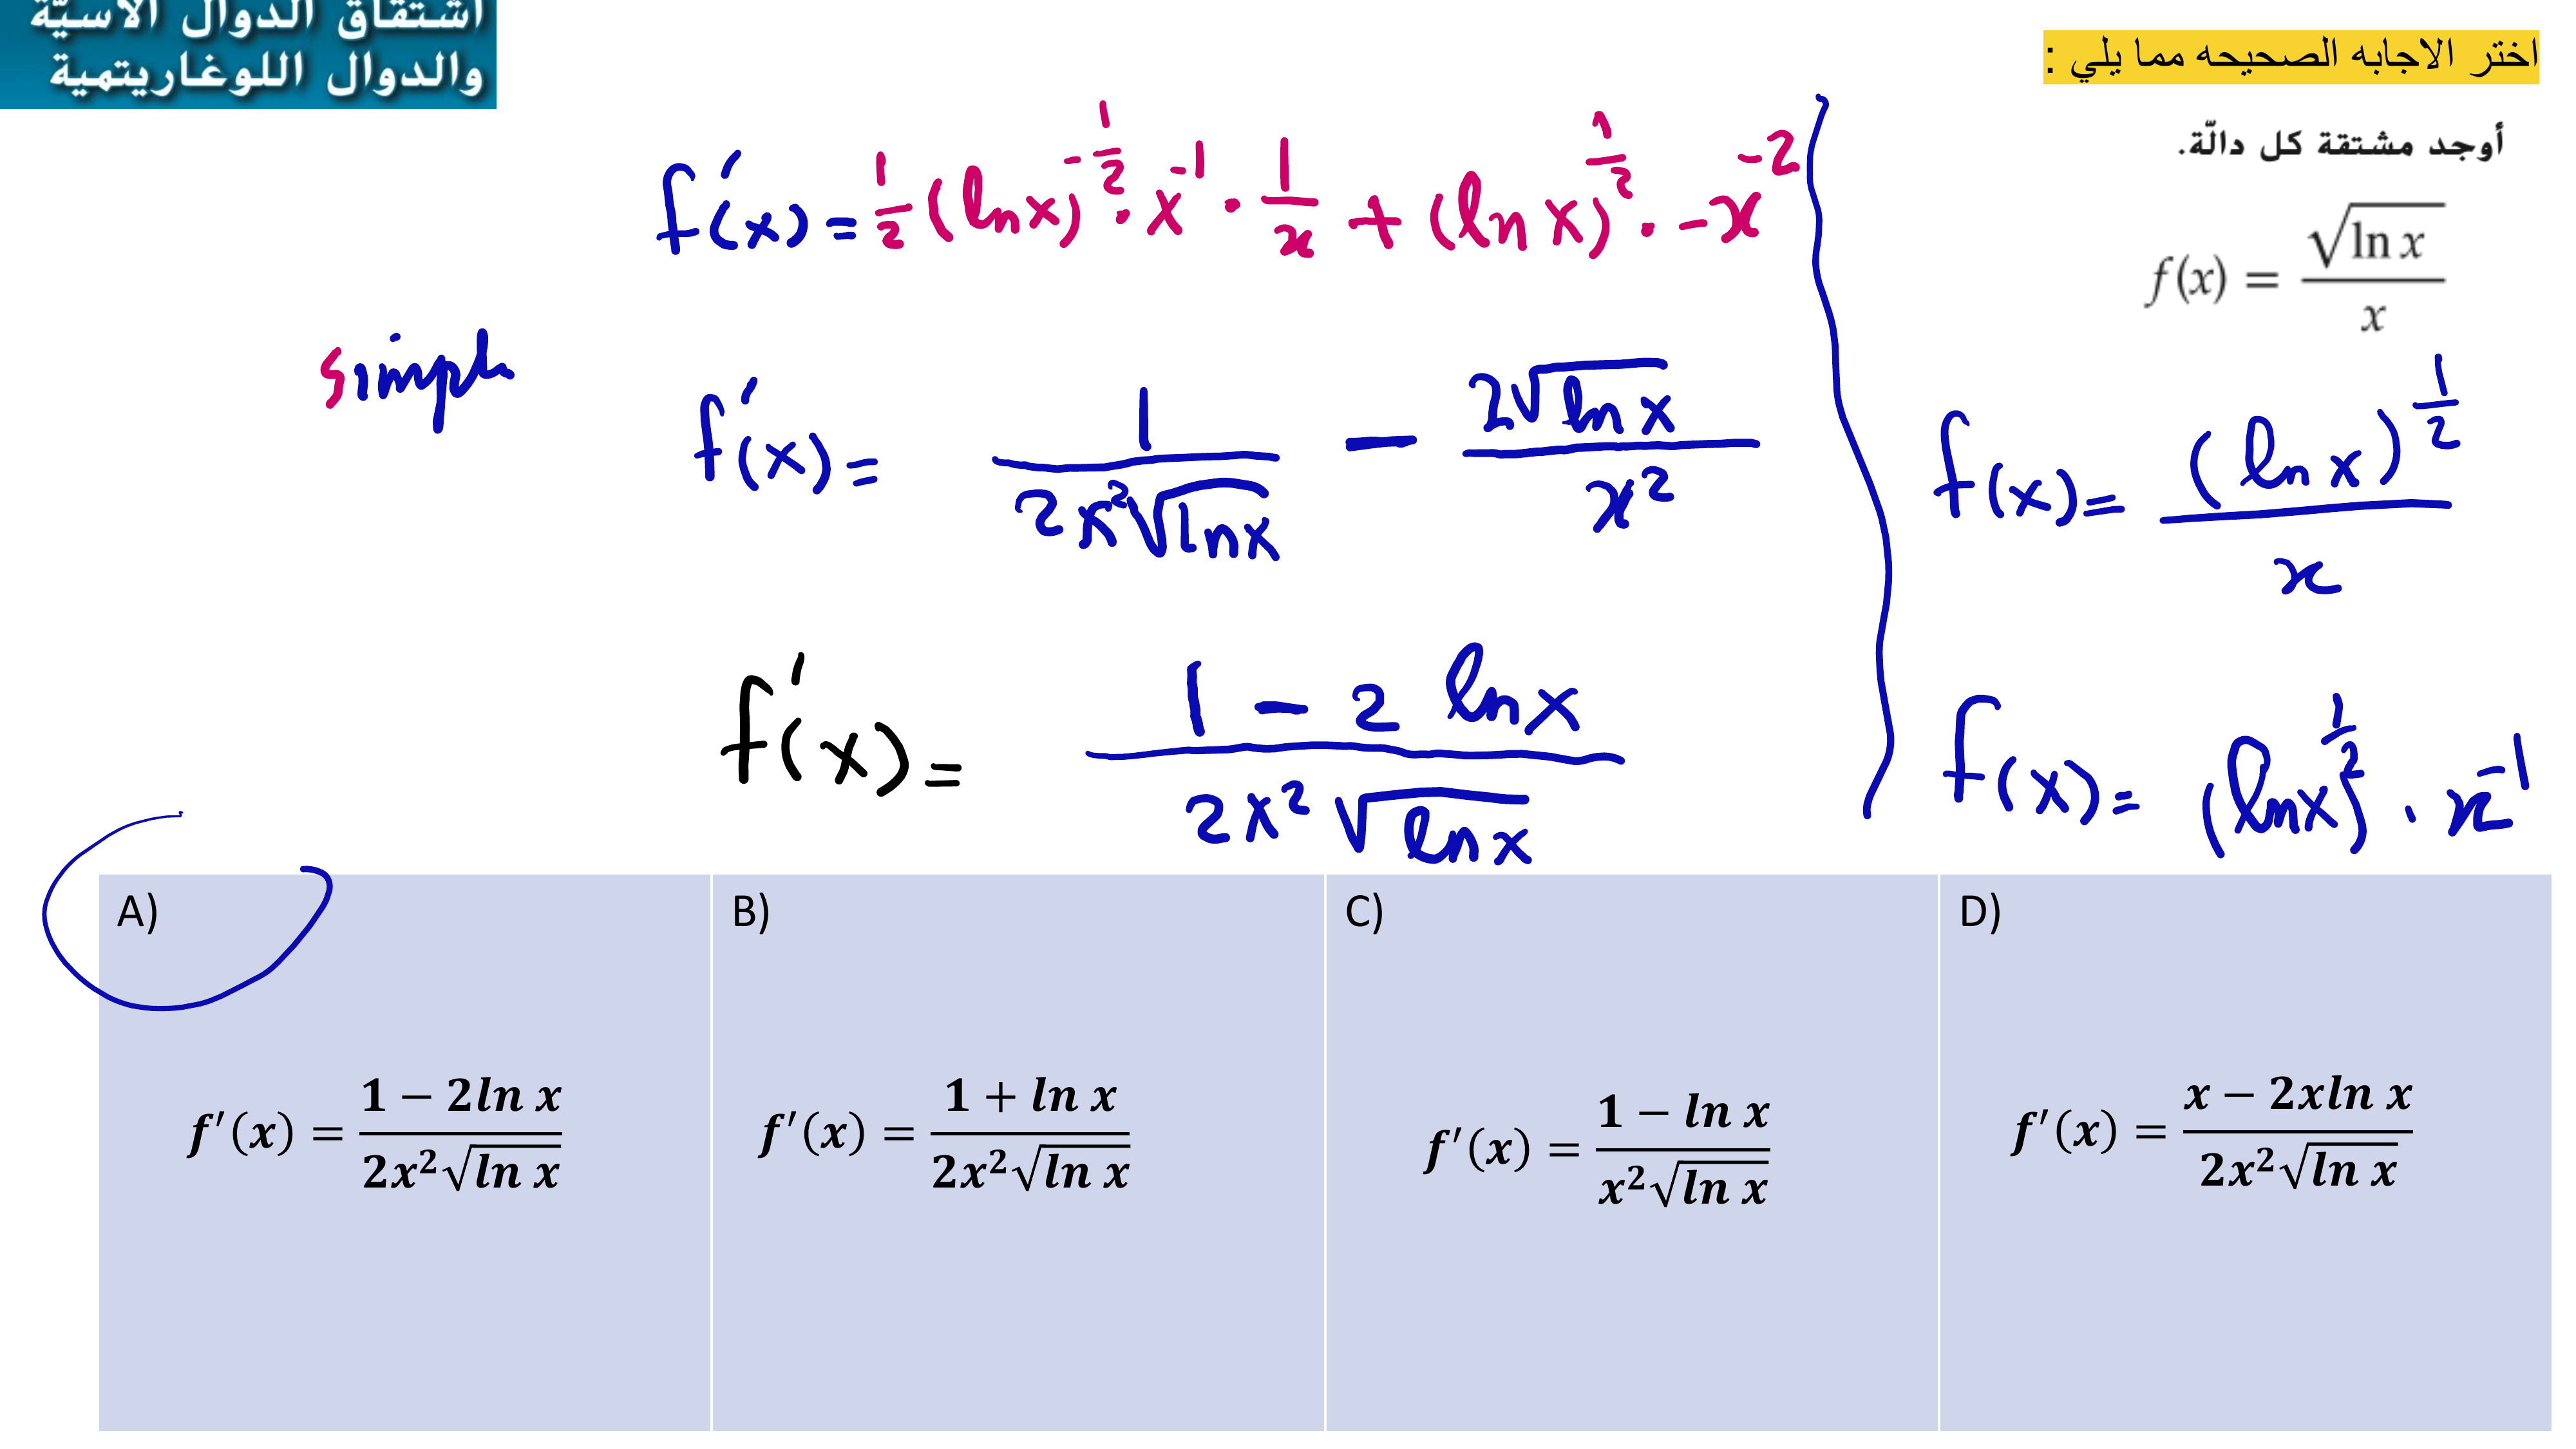 اشتقاق الدوال الأسيّة
والدوال اللوغاريتمية
اختر الاجابه الصحيحه مما يلي :
أوجد مشتقة كل دالّة.
f(x) = √(ln x) / x
f(x) = (ln x)^(1/2) / x
f(x) = (ln x)^(1/2) · x^(-1)
f'(x) = 1/2 (ln x)^(-1/2) · x^(-1) · 1/x + (ln x)^(1/2) · -x^(-2)
simple
f'(x) = 1 / (2x²√(ln x)) - 2√(ln x) / x²
f'(x) = (1 - 2 ln x) / (2x² √(ln x))
A)
f'(x) = (1 − 2ln x) / (2x²√(ln x))
B)
f'(x) = (1 + ln x) / (2x²√(ln x))
C)
f'(x) = (1 − ln x) / (x²√(ln x))
D)
f'(x) = (x − 2xln x) / (2x²√(ln x))